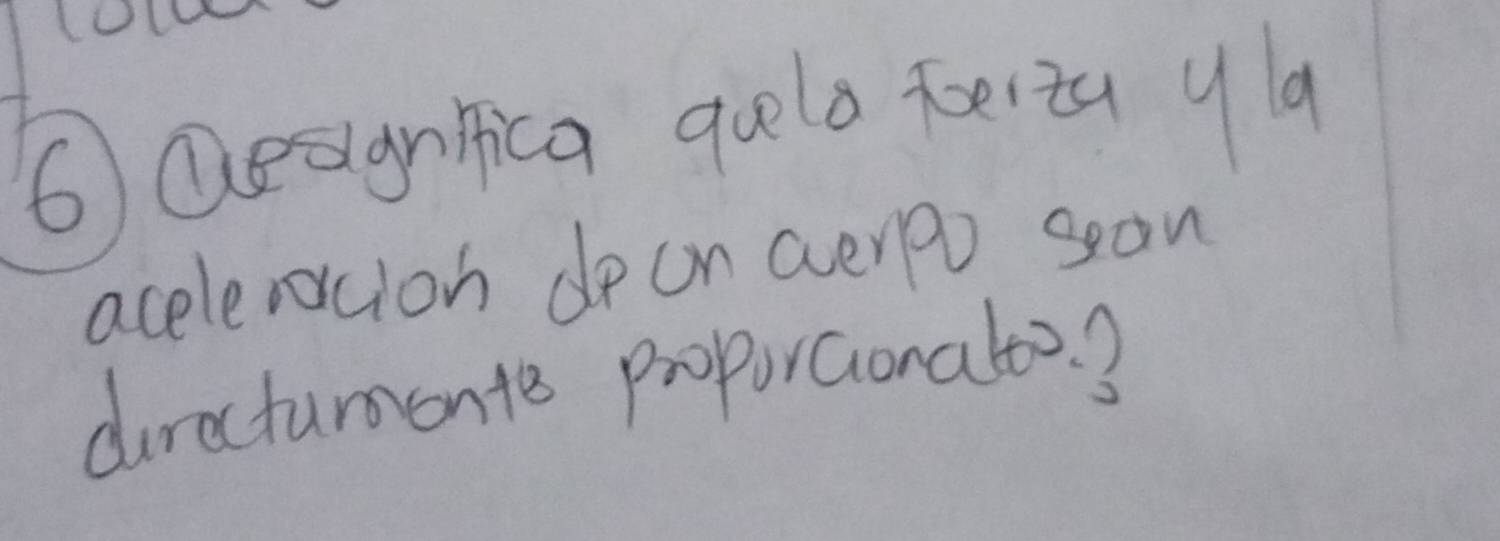 6 Que significa que la fuerza y la
aceleracion de un cuerpo sean
directamente proporcionales.?